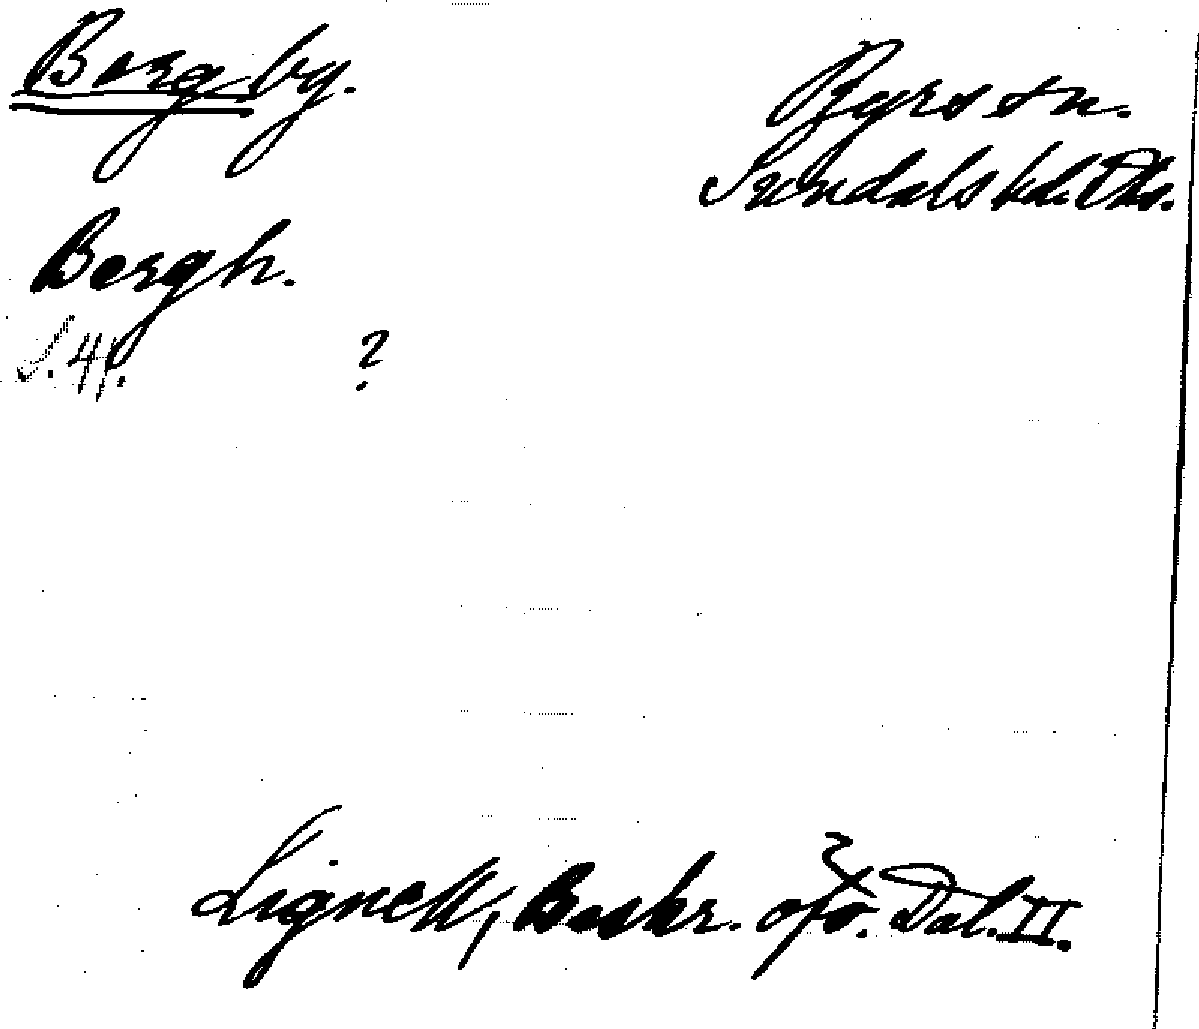 Berg by.
Ryrs sn.
Sundals hd. Dls.
Bergh.
S. 41. ?
Lignell, Beskr. öfv. Dal. II.